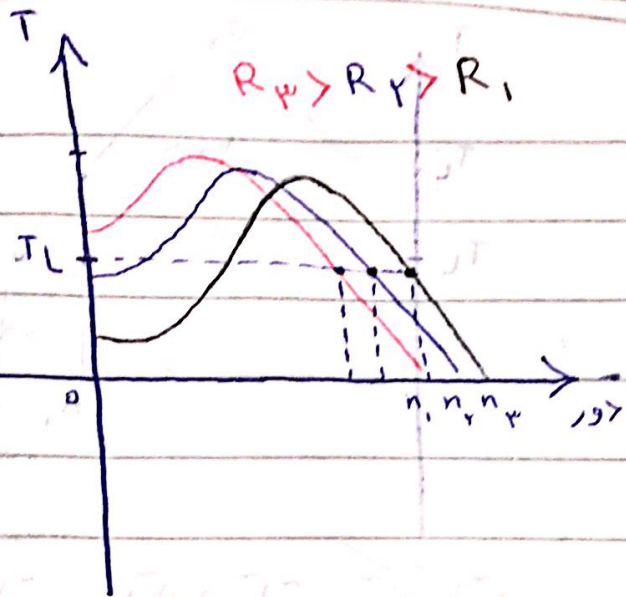 T
R۳ > R۲ > R۱
TL
0
n۱ n۲ n۳ دور